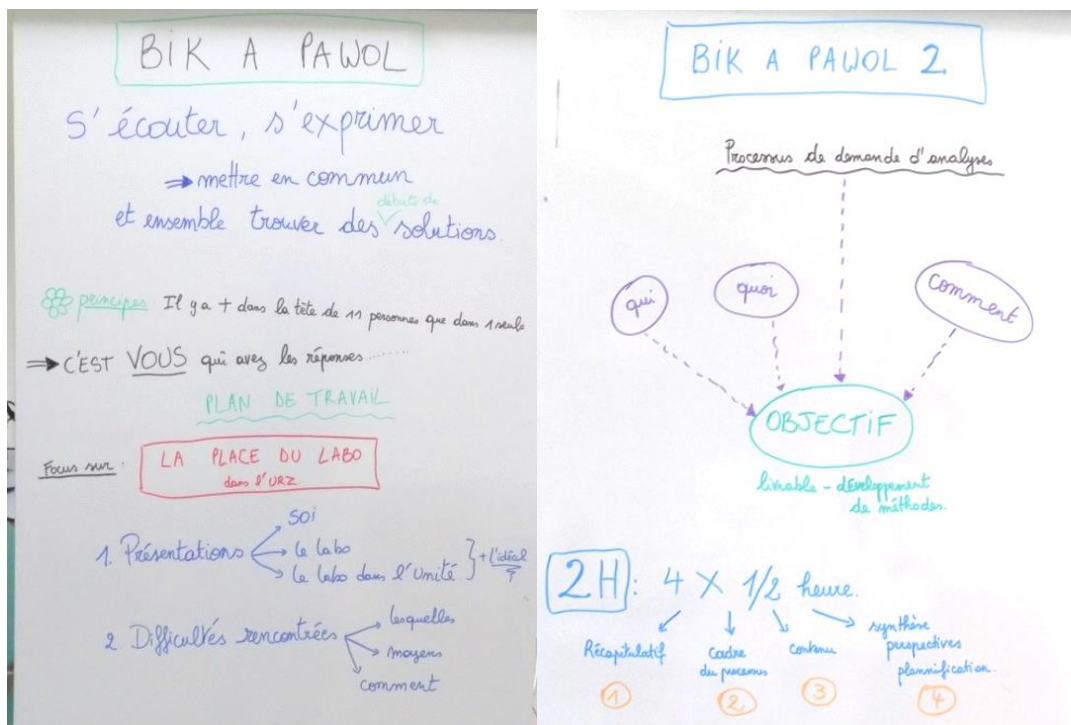 BIK A PAWOL
S'écouter, s'exprimer
⇒ mettre en commun
débuts de
et ensemble trouver des solutions.
principes Il y a + dans la tête de 11 personnes que dans 1 seule
⇒ C'EST VOUS qui avez les réponses.........
PLAN DE TRAVAIL
Focus sur :
LA PLACE DU LABO
dans l'URZ
1. Présentations
soi
le labo
le labo dans l'unité
+ l'idéal
?
2. Difficultés rencontrées
lesquelles
moyens
comment
BIK A PAWOL 2
Processus de demande d'analyses
qui
quoi
comment
OBJECTIF
livrable - développement
de méthodes.
2H : 4 X 1/2 heure.
Récapitulatif
1
cadre
du processus
2
contenu
3
synthèse
perspectives
plannification.
4